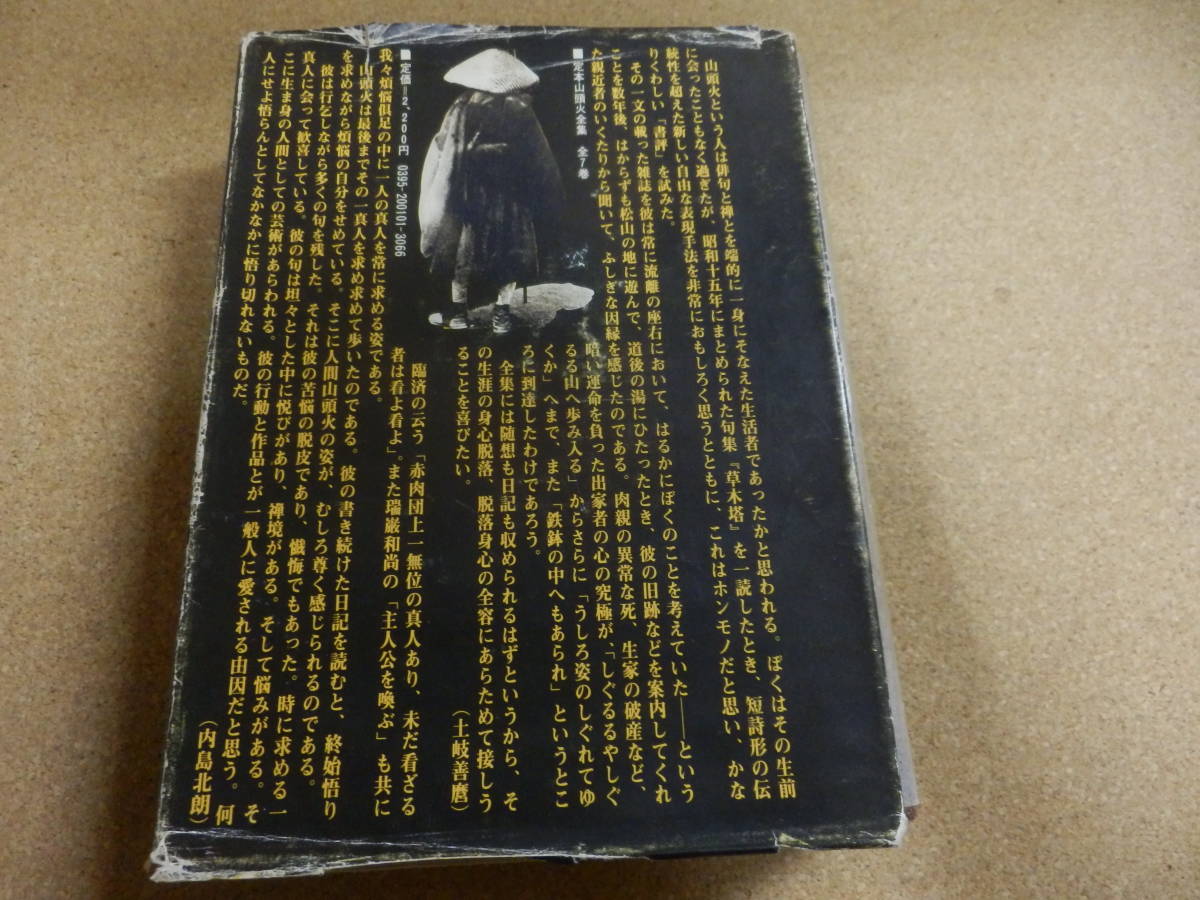 山頭火という人は俳句と禅とを端的に一身にそなえた生活者であったかと思われる。ぼくはその生前
に会ったこともなく過ぎたが、昭和十五年にまとめられた句集『草木塔』を一読したとき、短詩形の伝
統性を超えた新しい自由な表現手法を非常におもしろく思うとともに、これはホンモノだと思い、かな
りくわしい「書評」を試みた。
その一文の載った雑誌を彼は常に流離の座右において、はるかにぼくのことを考えていた――という
ことを数年後、はからずも松山の地に遊んで、道後の湯にひたったとき、彼の旧跡などを案内してくれ
た親近者のいくたりから聞いて、ふしぎな因縁を感じたのである。肉親の異常な死、生家の破産など、
暗い運命を負った出家者の心の究極が、「しぐるるやしぐ
るる山へ歩み入る」からさらに「うしろ姿のしぐれてゆ
くか」へまで、また「鉄鉢の中へもあられ」というとこ
ろに到達したわけであろう。
全集には随想も日記も収められるはずというから、そ
の生涯の身心脱落、脱落身心の全容にあらためて接しう
ることを喜びたい。
(土岐善麿)
■定本山頭火全集 全7巻
■定価=2,200円 0395-200101-3066
臨済の云う「赤肉団上一無位の真人あり、未だ看ざる
者は看よ看よ」。また瑞巌和尚の「主人公を喚ぶ」も共に
我々煩悩倶足の中に一人の真人を常に求める姿である。
山頭火は最後までその一真人を求め求めて歩いたのである。彼の書き続けた日記を読むと、終始悟り
を求めながら煩悩の自分をせめている。そこに人間山頭火の姿が、むしろ尊く感じられるのである。
彼は行乞しながら多くの句を残した。それは彼の苦悩の脱皮であり、懺悔でもあった。時に求める一
真人に会って歓喜している。彼の句は坦々とした中に悦びがあり、禅境がある。そして悩みがある。そ
こに生ま身の人間としての芸術があらわれる。彼の行動と作品とが一般人に愛される由因だと思う。何
人にせよ悟らんとしてなかなかに悟り切れないものだ。
(内島北朗)